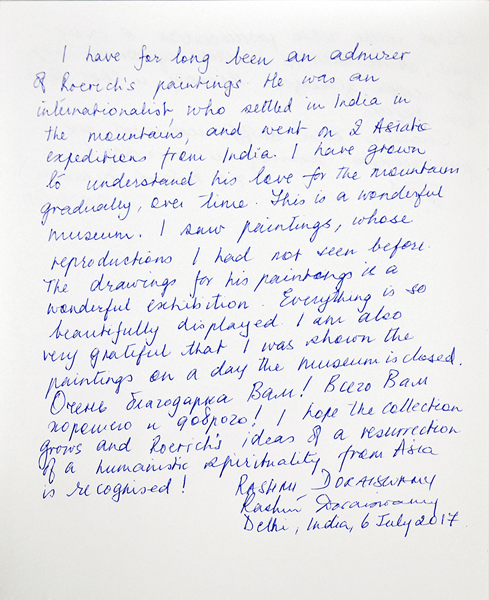 I have for long been an admirer
of Roerich's paintings. He was an
internationalist, who settled in India in
the mountains, and went on 2 Asiatic
expeditions from India. I have grown
to understand his love for the mountains
gradually, over time. This is a wonderful
museum. I saw paintings, whose
reproductions I had not seen before.
The drawings for his paintings is a
wonderful exhibition. Everything is so
beautifully displayed. I am also
very grateful that I was shown the
paintings on a day the museum is closed.
Очень благодарна Вам! Всего Вам
хорошио и доброго! I hope the collection
grows and Roerich's ideas of a resurrection
of a humanistic spirituality from Asia
is recognised!
RASHMI DORAISWAMY
Rashmi Doraiswamy
Delhi, India, 6 July 2017.